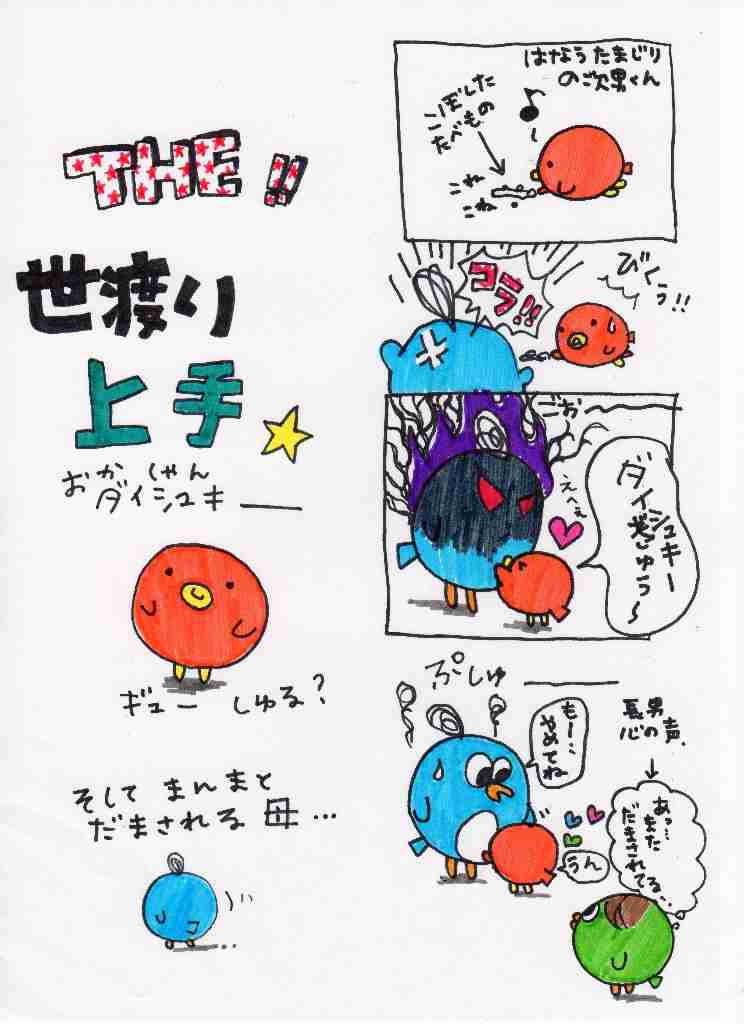 THE!!
世渡り
上手
おかしゃん
ダイシュキ――
ギュー しゅる?
そして まんまと
だまされる 母…
はなうたまじり
のご次男くん
こぼした
たべもの
こね
こね
コラ!!
びくぅ!!
ごお――
えへえ
ダイシュキー
ぎゅう〜
ぷしゅ――
もー…
やめてね
うん
長男
心の声
あっ…
また
だまされてる…